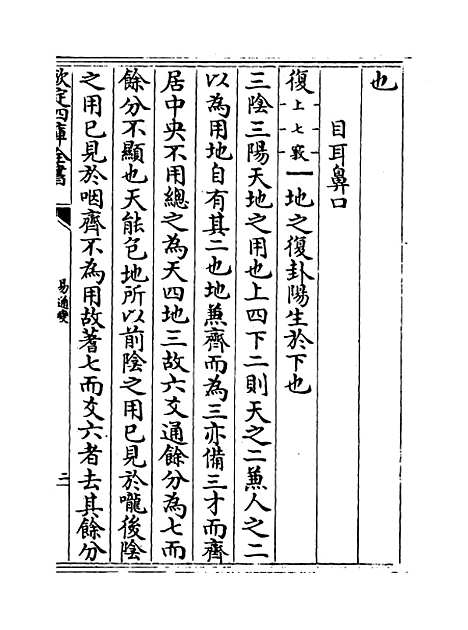 也
目耳鼻口
復上七竅一地之復卦陽生於下也
三陰三陽天地之用也上四下二則天之二兼人之二
以為用地自有其二也地兼齊而為三亦備三才而齊
居中央不用總之為天四地三故六爻通餘分為七而
餘分不顯也天能包地所以前陰之用已見於嚨後陰
之用已見於咽齊不為用故蓍七而爻六者去其餘分
欽定四庫全書
易通變
二